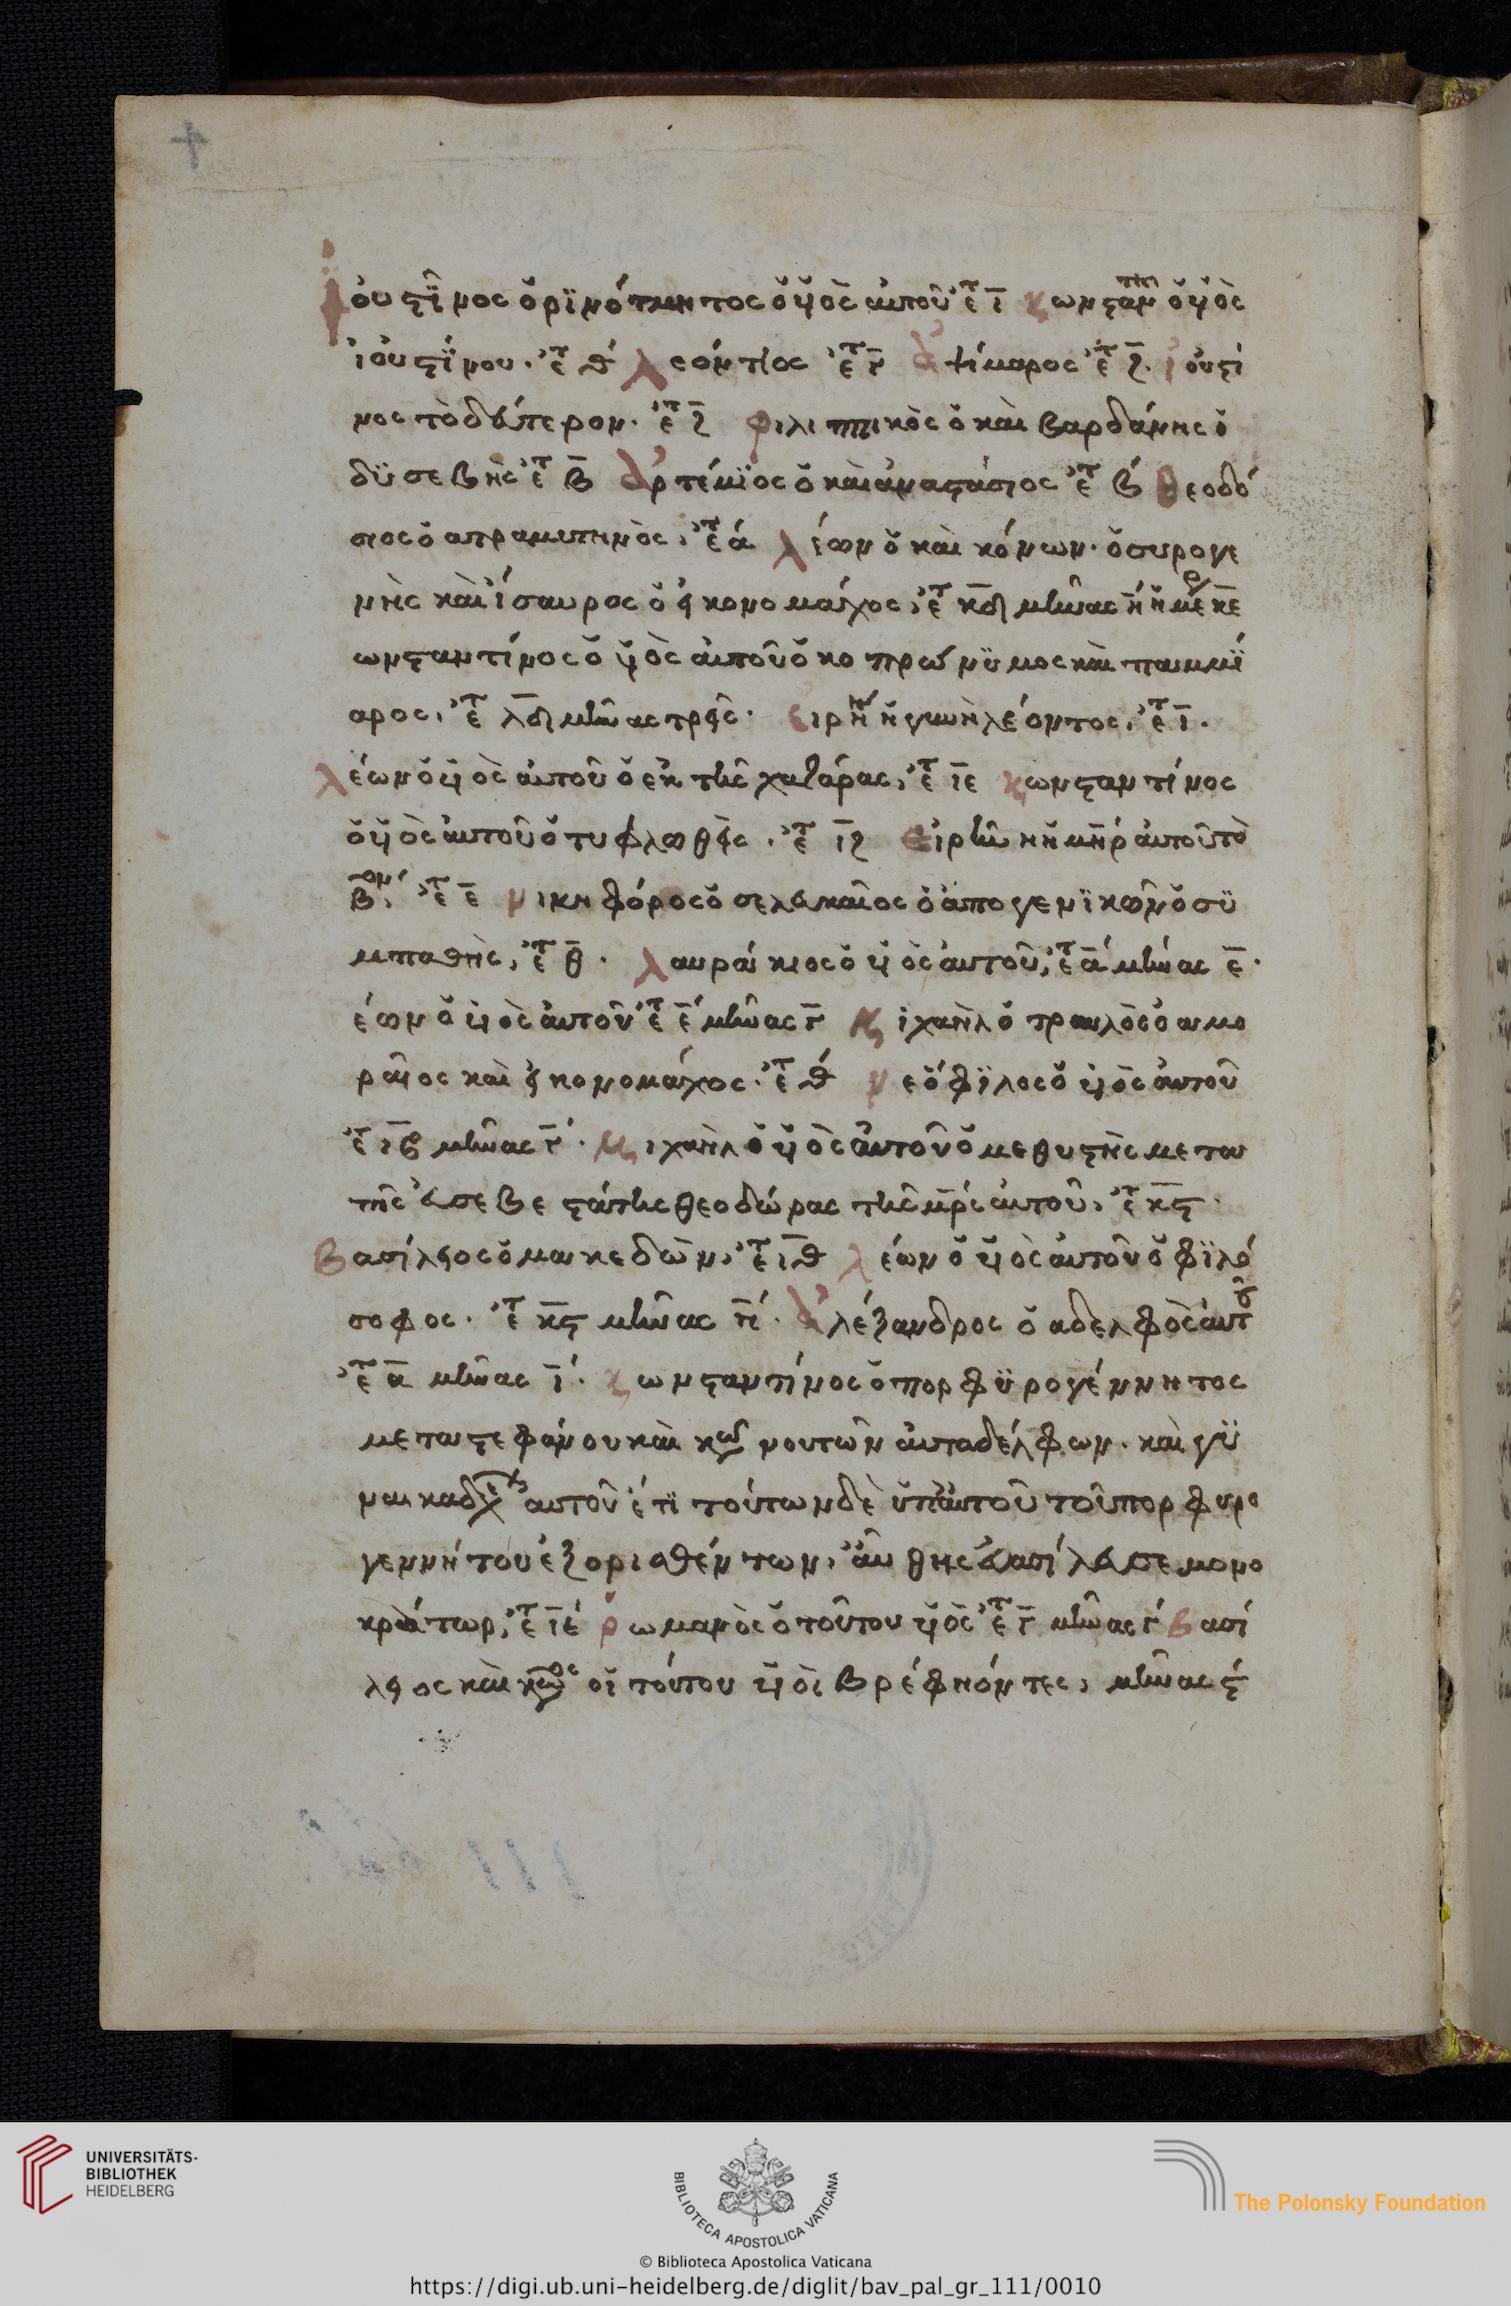 ἰουστῖνος ὁ ρϊνότμητος ὁ ὑϊὸς αὐτοῦ ἔτ ι κωνσταντῖν ὁ ὑϊὸς
ἰουστίνου· ἔτ θ λεόντιος ἔτ γ ἀψίμαρος ἔτ ζ· ἰουστί
νος τὸ δεύτερον· ἔτ ζ φιλιππικὸς ὁ καὶ βαρδάνης ὁ
δϋσεβὴς ἔτ β ἀρτέμϊος ὁ καὶ ἀναστάσιος ἔτ β θεοδό
σιος ὁ ατραμυτινὸς, ἔτ α λέων ὁ καὶ κόνων· ὁ συρογε
νὴς καὶ ἴσαυρος ὁ εἰκονομάχος, ἔτ κδ μῆνας η ἡμέρ κε
ωνσταντίνος ὁ ὑϊὸς αὐτοῦ ὁ κοπρώνϋμος καὶ παμμϊ
αρος, ἔτ λδ μῆνας τρεῖς· εἰρήνη ἡ γυνὴ λέοντος, ἔτ ι·
λέων ὁ ὑϊὸς αὐτοῦ ὁ ἐκ τῆς χαζάρας, ἔτ ιε κωνσταντίνος
ὁ ὑϊὸς αὐτοῦ ὁ τυφλωθεὶς· ἔτ ιζ εἰρήνη ἡ μηρ αὐτοῦ τὸ
βον, ἔτ ε νικηφόρος ὁ σελευκαῖος ὁ ἀπογενϊκῶν ὁ σϋ
μπαθὴς, ἔτ θ· λαυράκιος ὁ ὑϊὸς αὐτοῦ, ἔτ α μῆνας ε·
έων ὁ ὑϊὸς αὐτοῦ ἔτ ε μῆνας γ μιχαὴλ ὁ τραυλὸς ὁ αμο
ραῖος καὶ εἰκονομάχος· ἔτ θ νεόφϊλος ὁ ὑϊὸς αὐτοῦ
ἔτ ιβ μῆνας γ· μιχαὴλ ὁ ὑϊὸς αὐτοῦ ὁ μεθυστὴς μετα
τῆς εὐσεβεστάτης θεοδώρας τῆς μρς αὐτοῦ, ἔτ κς·
βασίλειος ὁ μακεδὼν, ἔτ ιθ λέων ὁ ὑϊὸς αὐτοῦ ὁ φϊλό
σοφος· ἔτ κς μῆνας η· ἀλέξανδρος ὁ αδελφὸς αὐτοῦ
ἔτ α μῆνας ι· κωνσταντίνος ὁ πορφϋρογέννητος
μετα στεφάνου καὶ κων νου τῶν αὐταδέλφων· καὶ γϋ
ναικαδέλφ αὐτοῦ ἔτϊ τούτων δὲ ὑπ αὐτοῦ τοῦ πορφυρο
γεννήτου ἐξορισθέντων, αὖθης ἐβασίλευσε μονο
κράτωρ, ἔτ ιε ῥωμανὸς ὁ τούτου ὑϊὸς ἔτ γ μῆνας γ βασί
λειος καὶ κωνος οἱ τούτου ὑϊοὶ βρέφη ὄντες, μῆνας ς
UNIVERSITÄTS-
BIBLIOTHEK
HEIDELBERG
BIBLIOTECA APOSTOLICA VATICANA
The Polonsky Foundation
© Biblioteca Apostolica Vaticana
https://digi.ub.uni-heidelberg.de/diglit/bav_pal_gr_111/0010